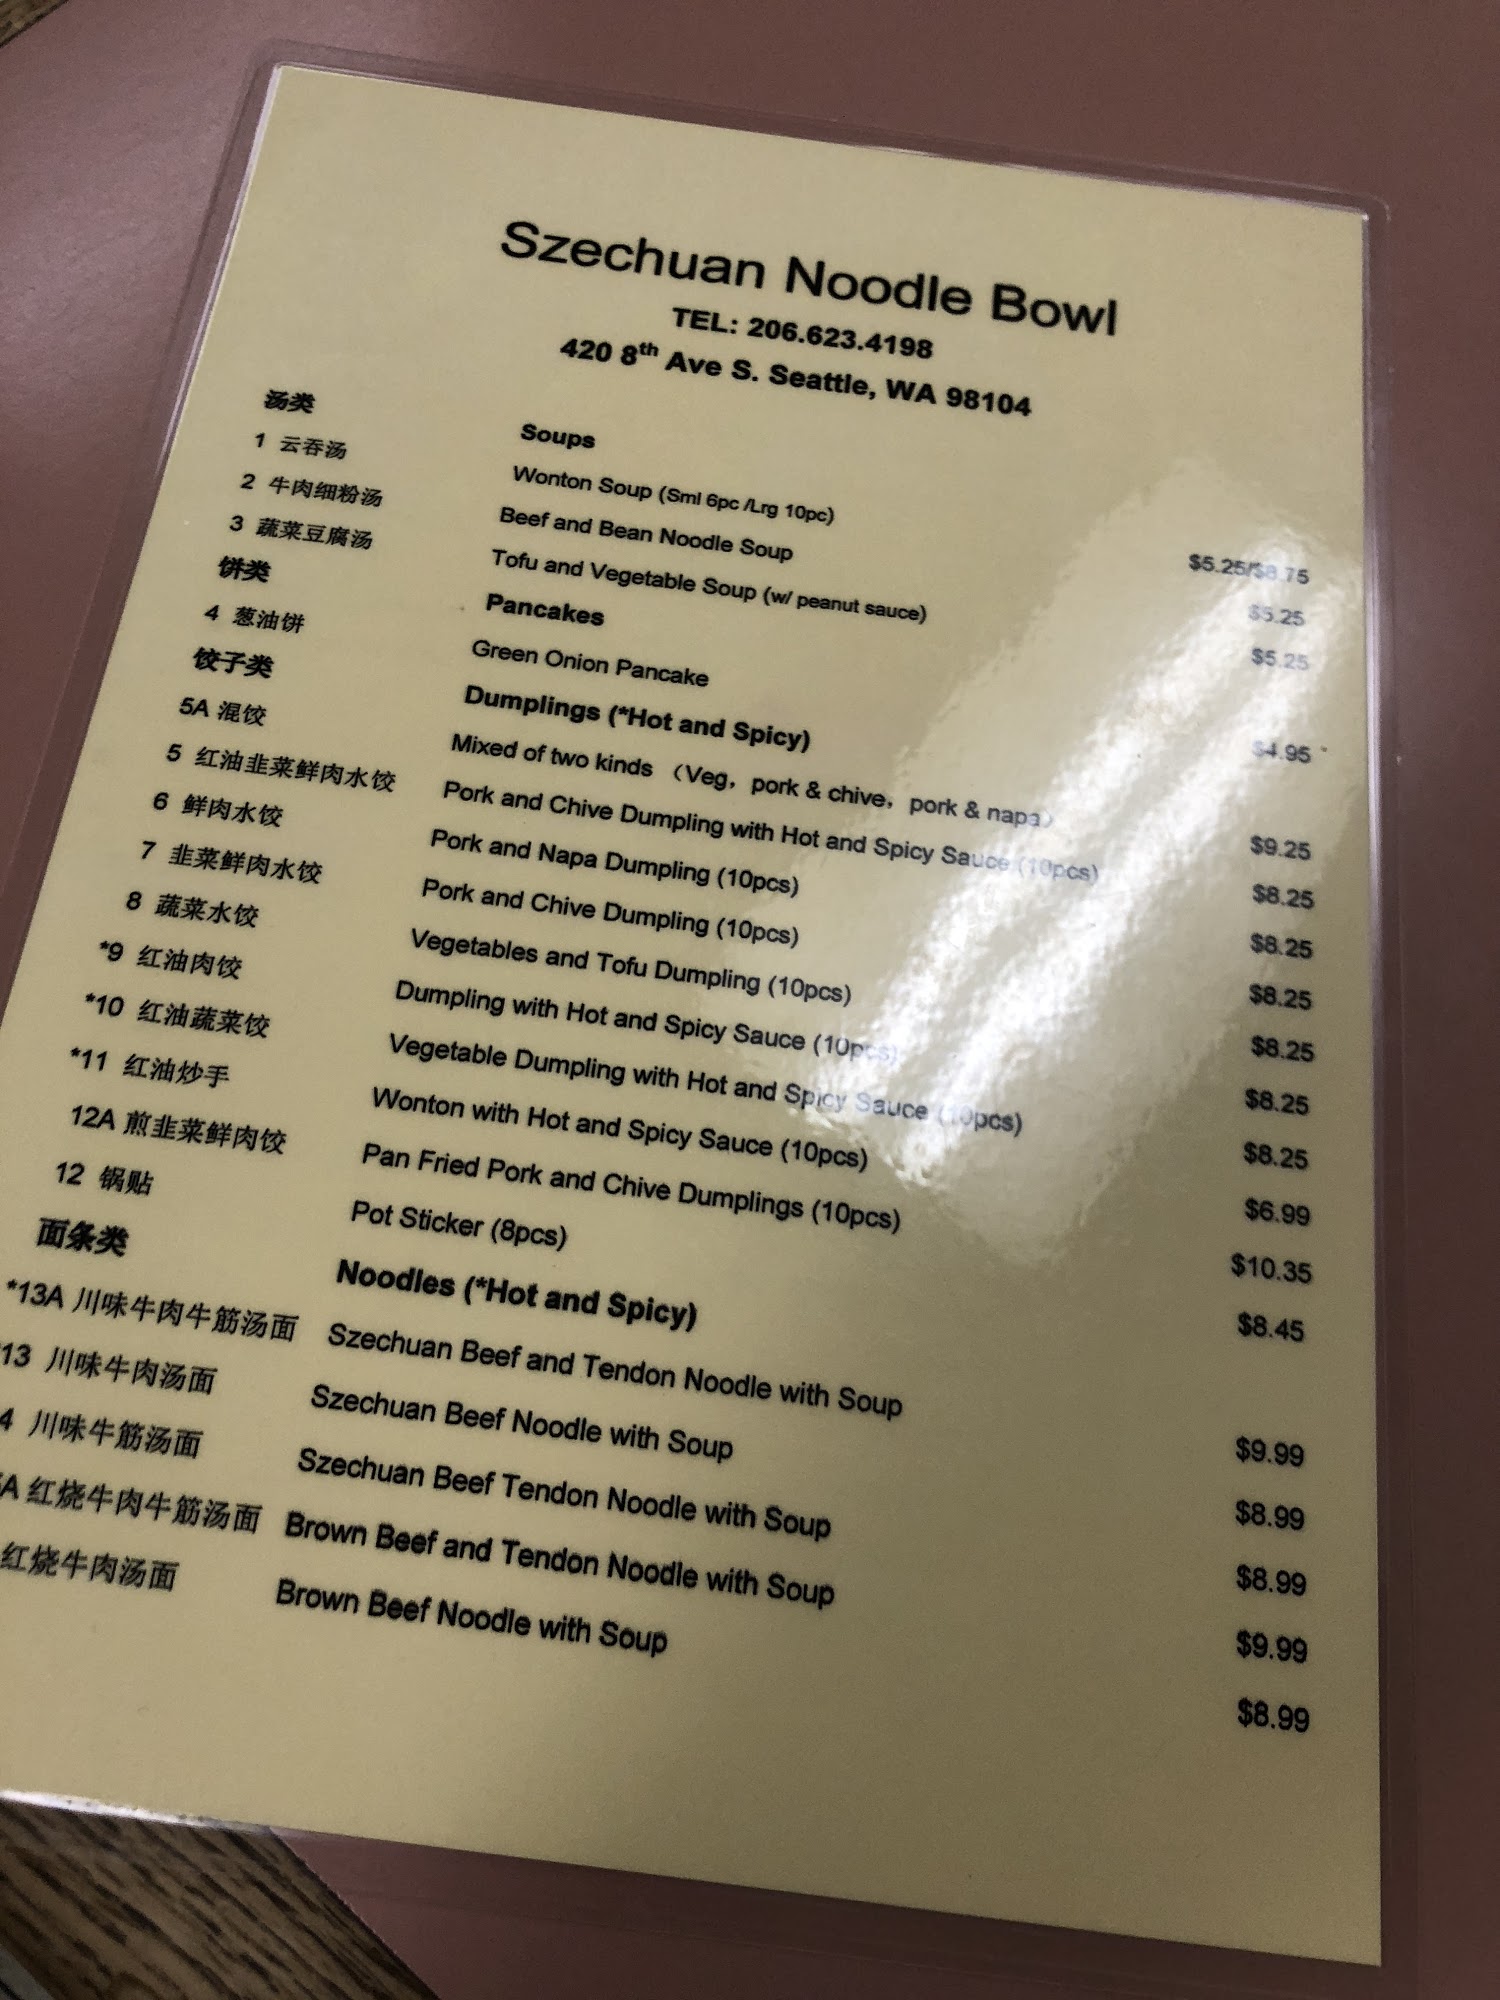 Szechuan Noodle Bowl
TEL: 206.623.4198
420 8th Ave S. Seattle, WA 98104
汤类 Soups
1 云吞汤 Wonton Soup (Sml 6pc /Lrg 10pc) $5.25/$8.75
2 牛肉细粉汤 Beef and Bean Noodle Soup $5.25
3 蔬菜豆腐汤 Tofu and Vegetable Soup (w/ peanut sauce) $5.25
饼类 Pancakes
4 葱油饼 Green Onion Pancake $4.95
饺子类 Dumplings (*Hot and Spicy)
5A 混饺 Mixed of two kinds （Veg，pork & chive，pork & napa） $9.25
5 红油韭菜鲜肉水饺 Pork and Chive Dumpling with Hot and Spicy Sauce (10pcs) $8.25
6 鲜肉水饺 Pork and Napa Dumpling (10pcs) $8.25
7 韭菜鲜肉水饺 Pork and Chive Dumpling (10pcs) $8.25
8 蔬菜水饺 Vegetables and Tofu Dumpling (10pcs) $8.25
*9 红油肉饺 Dumpling with Hot and Spicy Sauce (10pcs) $8.25
*10 红油蔬菜饺 Vegetable Dumpling with Hot and Spicy Sauce (10pcs) $8.25
*11 红油炒手 Wonton with Hot and Spicy Sauce (10pcs) $6.99
12A 煎韭菜鲜肉饺 Pan Fried Pork and Chive Dumplings (10pcs) $10.35
12 锅贴 Pot Sticker (8pcs) $8.45
面条类 Noodles (*Hot and Spicy)
*13A 川味牛肉牛筋汤面 Szechuan Beef and Tendon Noodle with Soup $9.99
13 川味牛肉汤面 Szechuan Beef Noodle with Soup $8.99
4 川味牛筋汤面 Szechuan Beef Tendon Noodle with Soup $8.99
A 红烧牛肉牛筋汤面 Brown Beef and Tendon Noodle with Soup $9.99
红烧牛肉汤面 Brown Beef Noodle with Soup $8.99